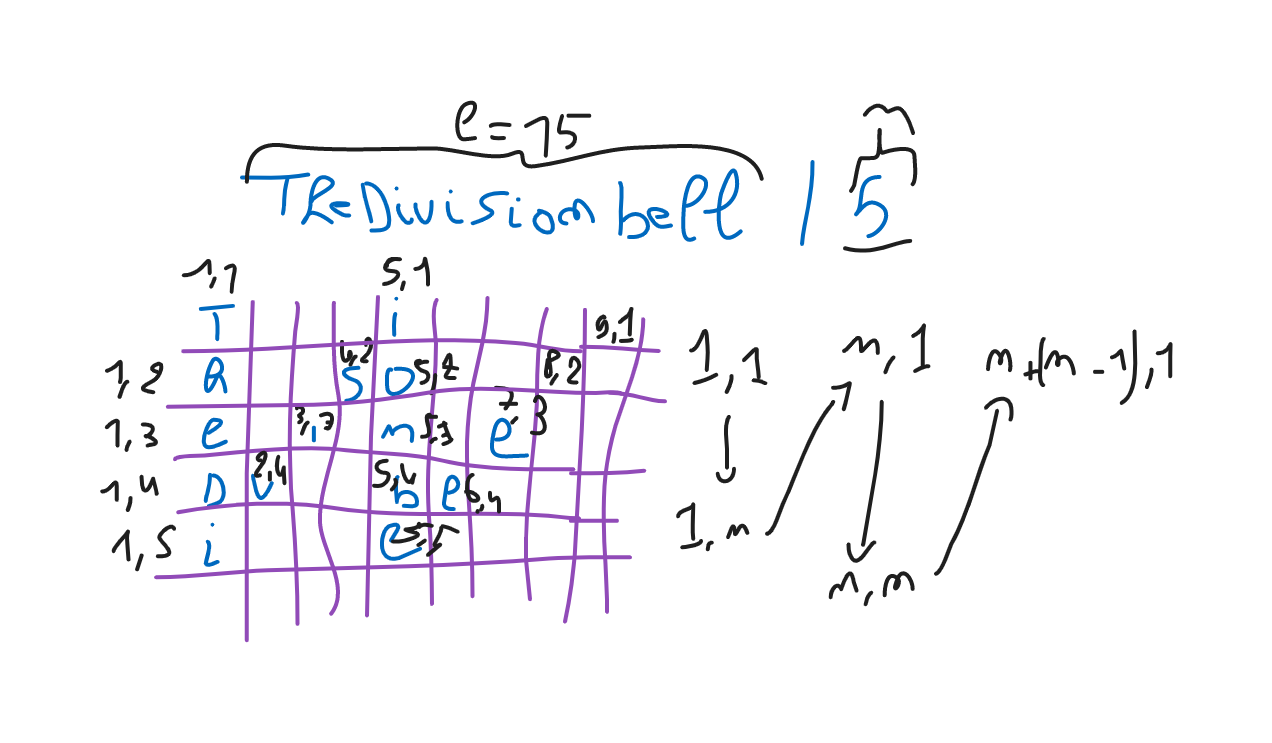 l=15
TheDivisionbell / 5
n
1,1 5,1
T i 9,1
1,2 h 4,2 s o 5,2 8,2
1,3 e 3,3 i n 5,3 e 7,3
1,4 D 2,4 v 5,4 b e 6,4
1,5 i e 5,5
1,1 n,1 n+(n-1),1
1,n n,n